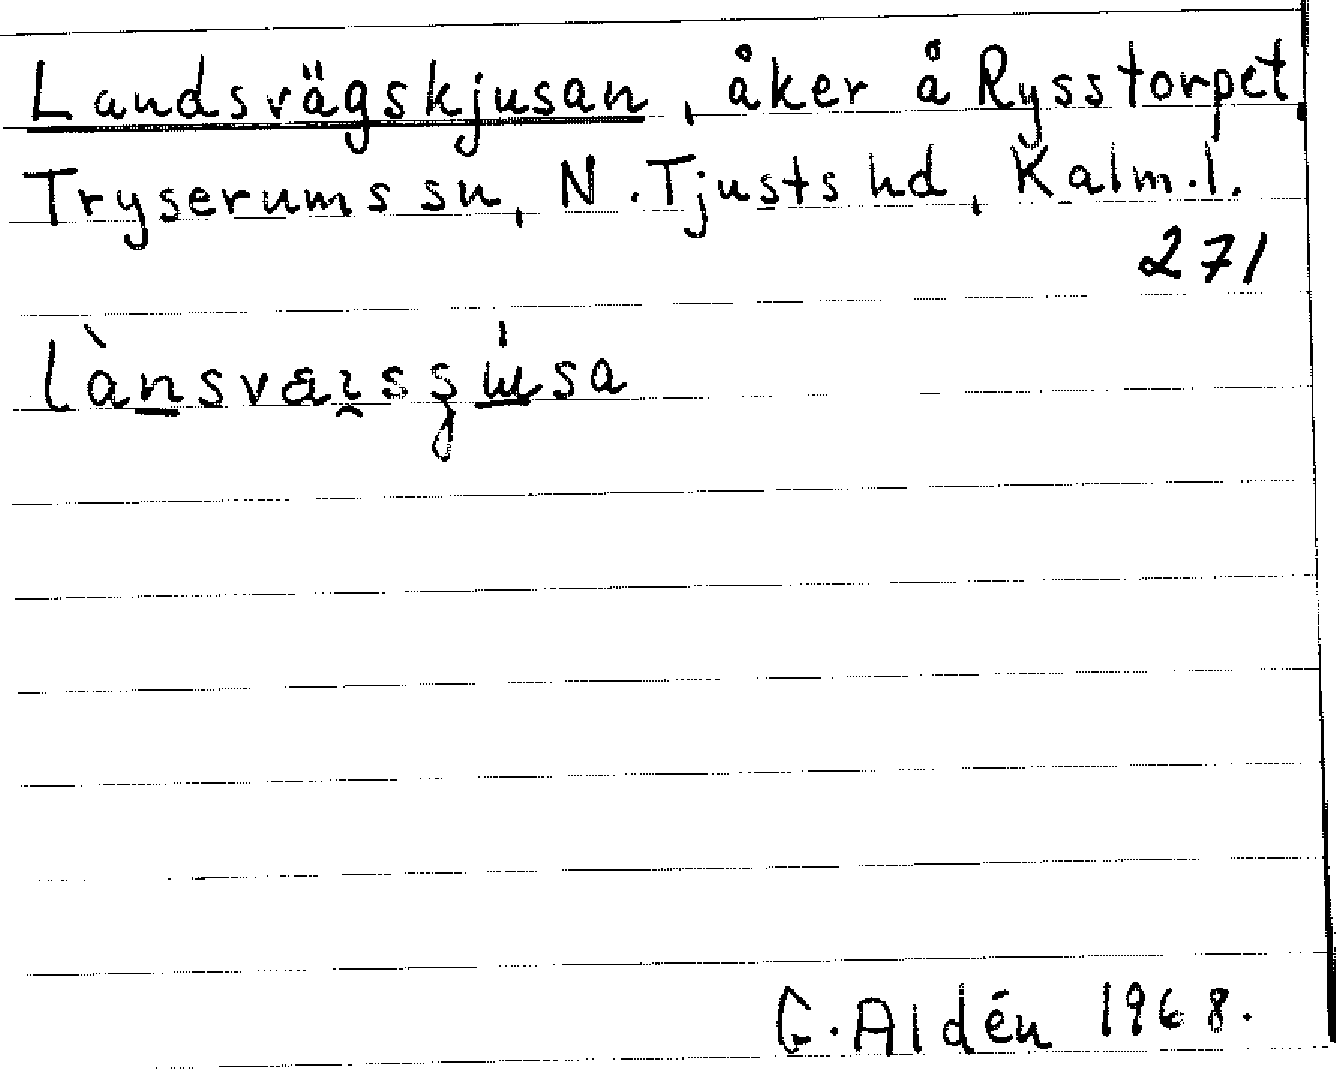 Landsvägskjusan, åker å Rysstorpet,
Tryserums sn, N. Tjusts hd, Kalm. l.
271
G. Aldén 1968.